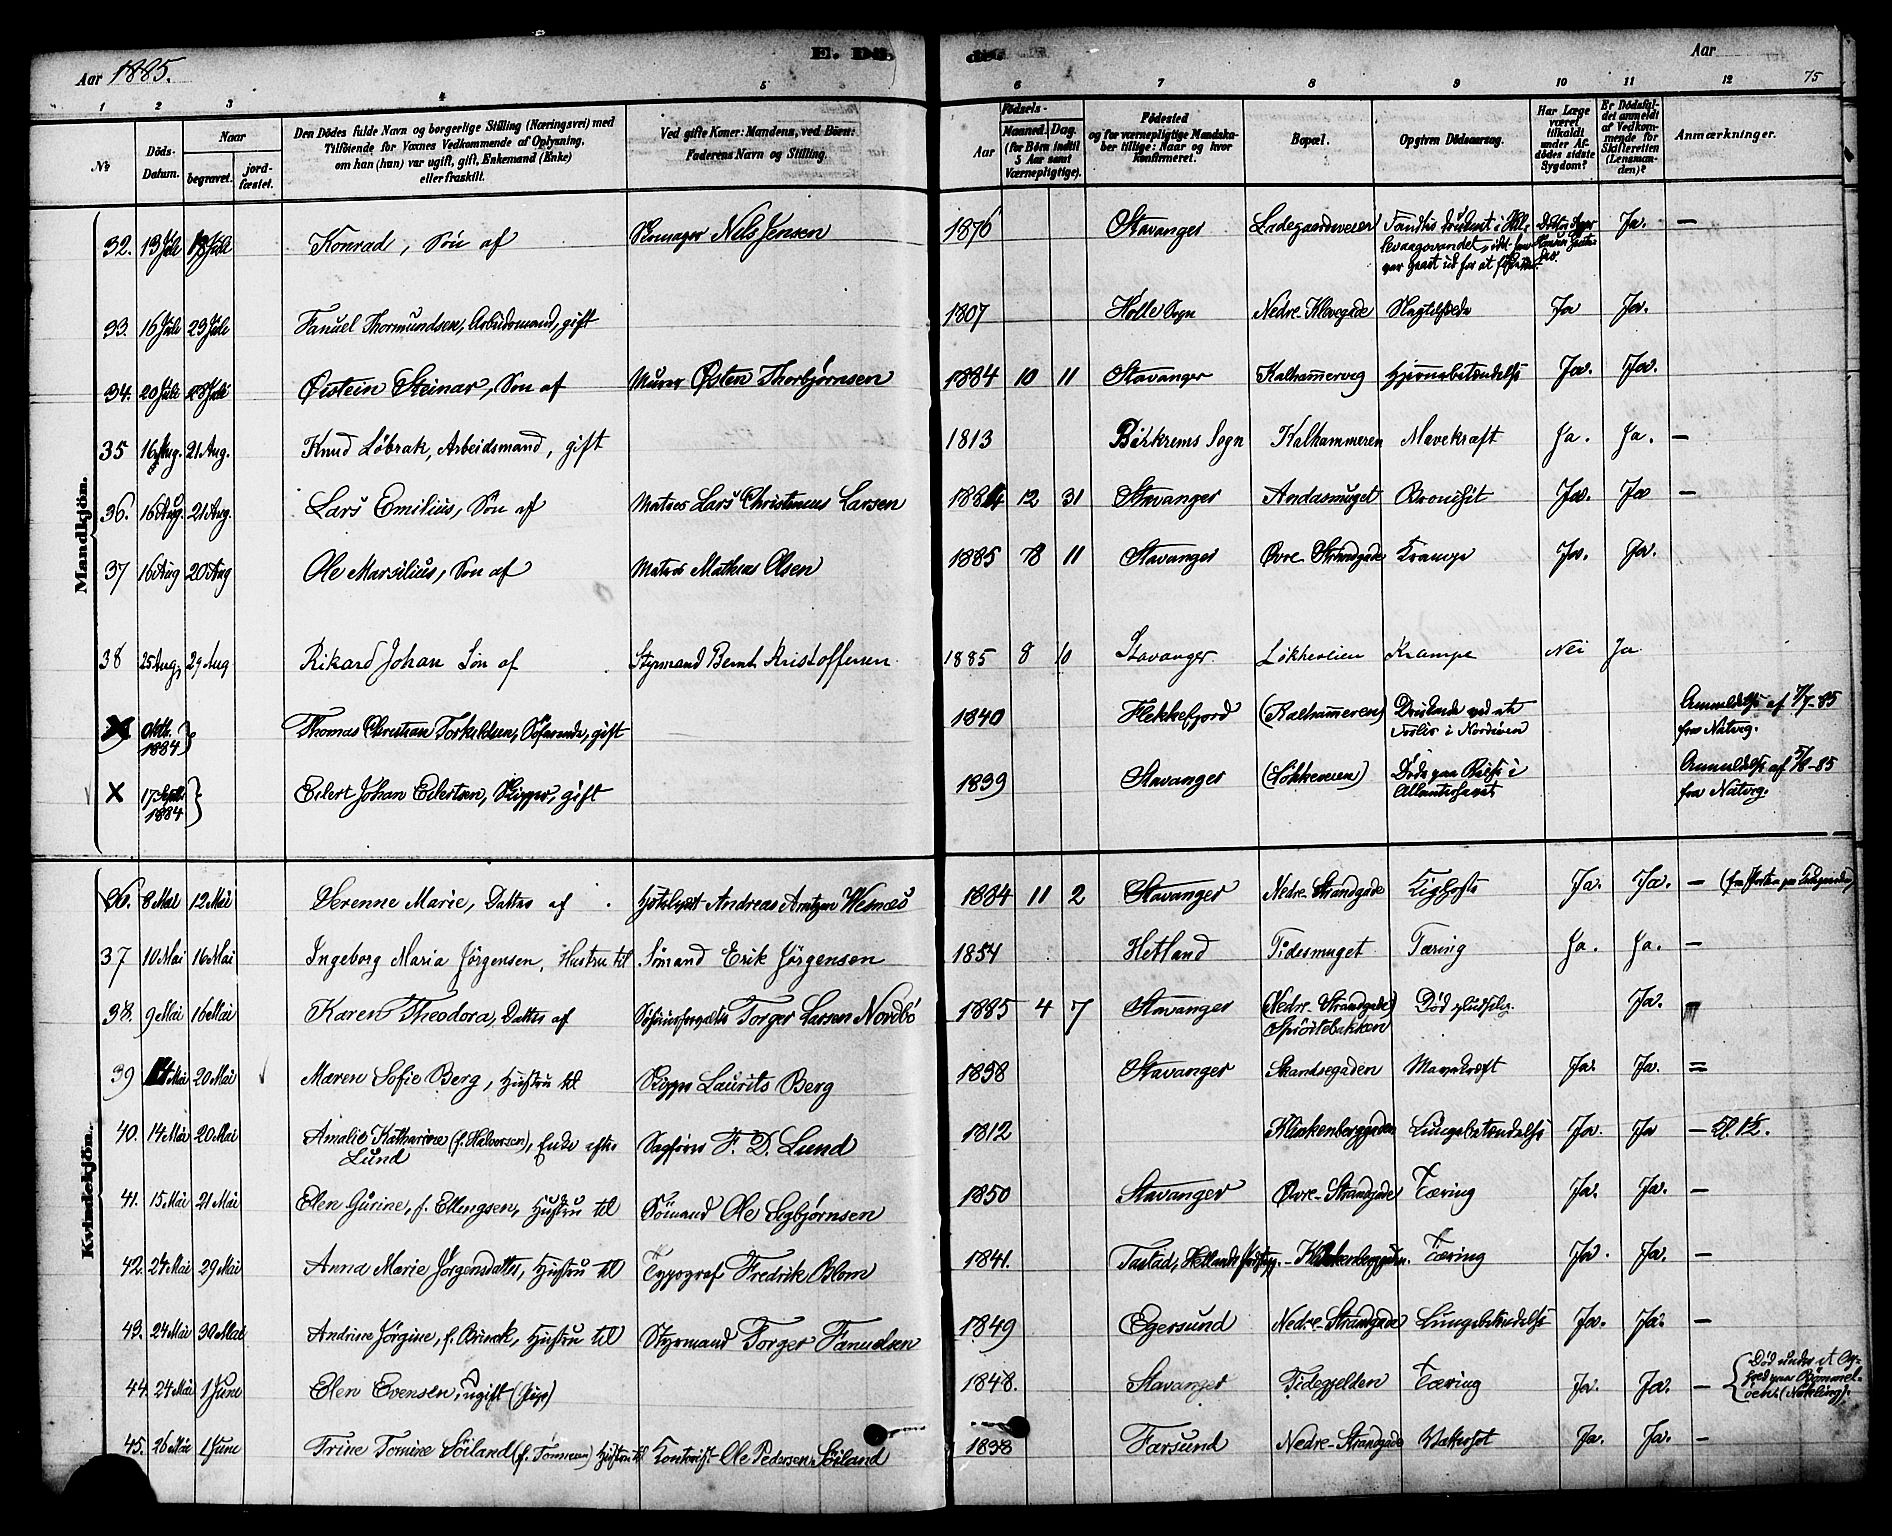 Aar 1885.
E. Dø-
de.
Aar
75
1 2 3 4 5 6 7 8 9 10 11 12
No
Döds-Datum.
Naar
begravet.
jord-fæstet.
Den Dödes fulde Navn og borgerlige Stilling (Næringsvei) med
Tilföiende for Voxnes Vedkommende af Oplysning,
om han (hun) var ugift, gift, Enkemand (Enke)
eller fraskilt.
Ved gifte Koner: Mandens, ved Börn:
Faderens Navn og Stilling.
Födsels-
Aar
Maaned. Dag.
(for Börn indtil
5 Aar samt
Værnepligtige).
Födested
og for værnepligtige Mandska-
ber tillige: Naar og hvor
konfirmeret.
Bopæl.
Opgiven Dödsaarsag.
Har Læge
været
tilkaldt
under Af-
dödes sidste
Sygdom?
Er Dödsfal-
det anmeldt
af Vedkom-
mende for
Skifteretten
(Lensman-
den)?
Anmærkninger.
Mandkjön.
32. 13 Juli Juli Konrad, Sön af Skomager Nels Jensen 1876 Stavanger Ladegaardsveien Ja. —
33. 16 Juli 23 Juli Fanuel Thormundsen, Arbeidsmand, gift 1807 Holle Sogn Nedre Kleveg Ja Ja.
34. 20 Juli 28 Juli Øistein Steinar, Søn af Murer Østen Thorbjørnsen 1884 10 11 Stavanger Kalhammerveg Hjernebetændelse Ja. Ja.
35 16 Aug. 21 Aug. Knud Løbrak, Arbeidsmand, gift 1813 Birkrems Sogn Kalhammeren Mavekræft Ja. Ja. —
36. 16 Aug. 21 Aug. Lars Emilius, Søn af Matros Lars Christinius Larsen 1884 12 31 Stavanger Andasmuget Bronchit Ja. Ja —
37 16 Aug 20 Aug Ole Marsilius, Søn af Matros Mathias Olsen 1885 8 11 Stavanger Øvre Strandgade Krampe Ja. Ja.
38 25 Aug. 29 Aug Rikard Johan Søn af Styrmand Bernt Kristoffersen 1885 8 10 Stavanger Løkkeveien Krampe Nei Ja
1884 } Thomas Christian Torkildsen, Søfarende, gift 1840 Flekkefjord (Kalhammeren) Druknede ved et
Forlis i Nordsøen Anmeldelse af 7/7-85
fra Natvig.
X 17 Septb
1884 } Eilert Johan Eilertsen, Skipper, gift 1839 Stavanger (Løkkeveien) Døde paa Reise i
Atlanterhavet Anmeldelse af 5/8-85
fra Natvig.
Kvindekjön.
36. 8 Mai 12 Mai Marie, Datter af Andreas Arntzen Wesnæs 1884 11 2 Stavanger Nedre Strandgade Kighoste Ja. Ja. —
37 10 Mai 16 Mai Ingeborg Maria Jörgensen, Hustru til Sömand Erik Jörgensen 1854 Hetland Tidesmuget Tæring Ja. Ja. —
38. 9 Mai 16 Mai Karen Theodora, Datter af Torger Larsen Nordbö 1885 4 7 Stavanger (Nedre Strandgade)
Sprøitebakken Død pludselig Ja.
39 14 Mai 20 Mai Maren Sofie Berg, Hustru til Skipper Laurits Berg 1838 Stavanger Skandsegaden Mavekræft Ja. Ja. =
40. 14 Mai 20 Mai Amalie Katharine (f. Halvorsen), Enke efter
Lund Sagfører F. D. Lund 1812 Klinkenberggaden Lungebetændelse Ja. Ja — Kl. 1½.
41. 15 Mai 21 Mai Elen Gurine, f. Ellingsen, Hustru til Sömand Ole Segbjørnsen 1850 Stavanger Øvre Strandgade Tæring Ja. Ja. —
42. 24 Mai 29 Mai Anna Marie Jørgensdatter, Hustru til Typograf Fredrik Blom 1841. Tastad, Hetlands Klinkenberggaden. Tæring Ja. Ja. —
43. 24 Mai 30 Mai Andrine Jörgine, f. Brinck, Hustru til Styrmand Torger Fanuelsen 1849 Egersund Nedre Strandgade Lungebetændelse Ja. Ja. —
44. 24 Mai 1 Juni Elen Evensen, ugift (Pige) 1848. Stavanger Tidegjelden Tæring Ja. Ja. — Død under et Op-
hold paa Bömmel-
öen
45. 26 Mai 1 Juni Trine Tomine Söiland (f. Tönnesen) Hustru til Kontorist Ole Pedersen Söiland 1838 Farsund Nedre Strandgade Vattersot Ja. Ja. —